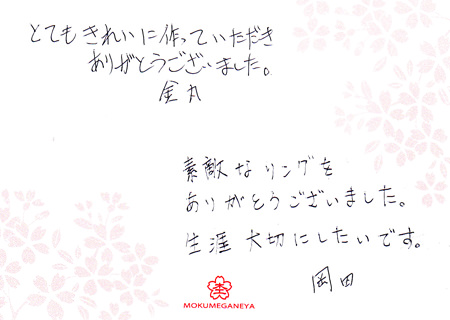 とてもきれいに作っていただき
ありがとうございました。
金丸
素敵なリングを
ありがとうございました。
生涯大切にしたいです。
岡田
MOKUMEGANEYA